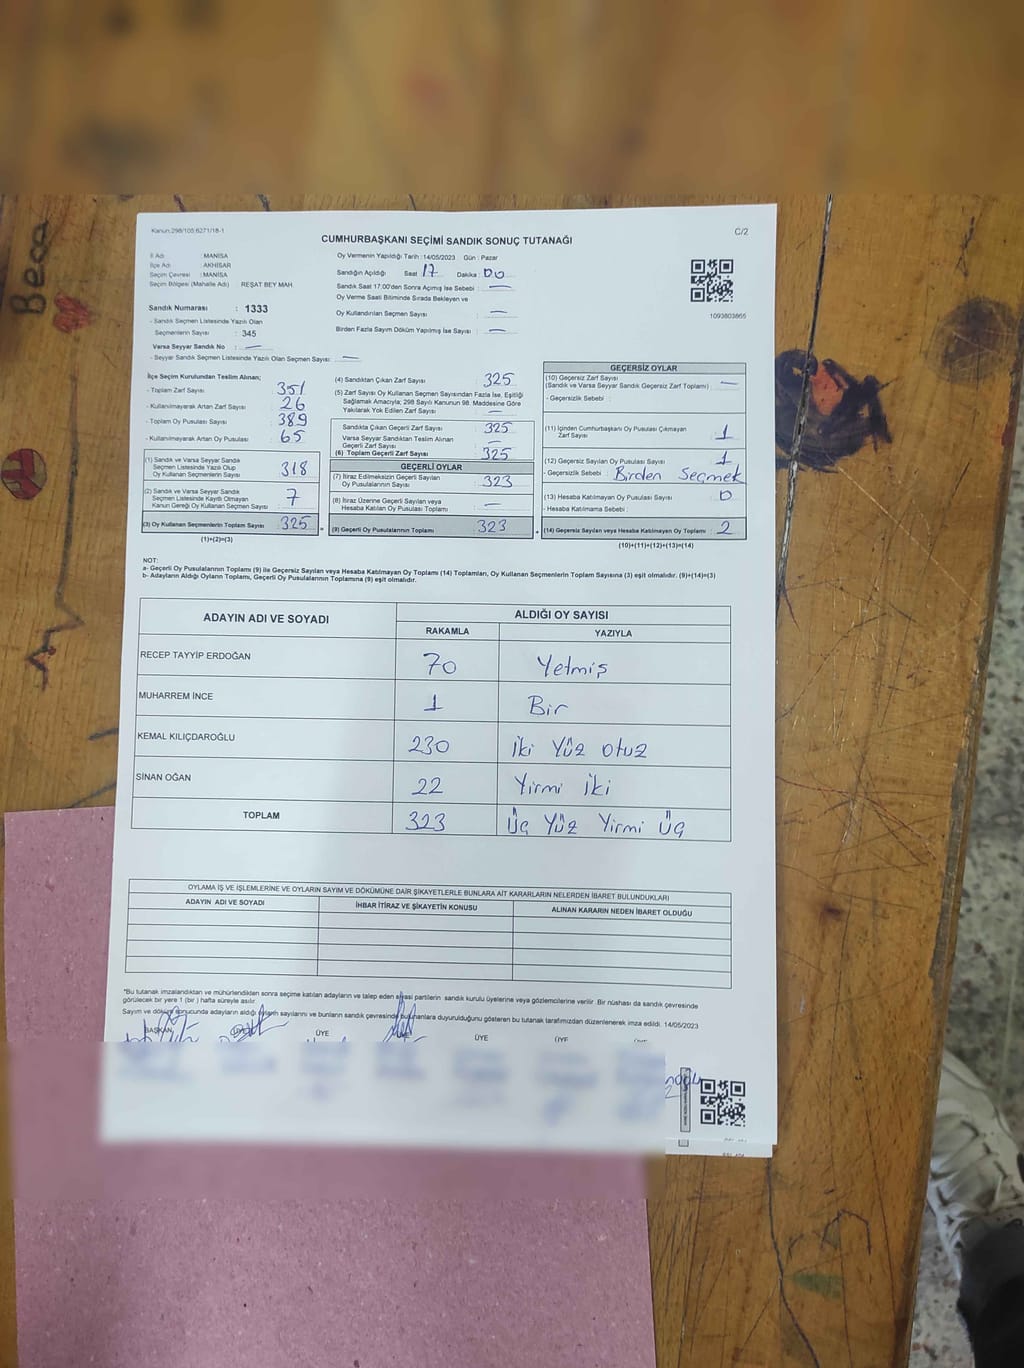 Bea
Kanun:298/105;6271/18-1
C/2
CUMHURBAŞKANI SEÇİMİ SANDIK SONUÇ TUTANAĞI
İl Adı MANİSA
İlçe Adı AKHİSAR
Seçim Çevresi : MANİSA
Seçim Bölgesi (Mahalle Adı) REŞAT BEY MAH.
Sandık Numarası : 1333
- Sandık Seçmen Listesinde Yazılı Olan
Seçmenlerin Sayısı : 345
Varsa Seyyar Sandık No : —
- Seyyar Sandık Seçmen Listesinde Yazılı Olan Seçmen Sayısı: —
Oy Vermenin Yapıldığı Tarih : 14/05/2023 Gün : Pazar
Sandığın Açıldığı Saat : 17 Dakika : 00
Sandık Saat 17:00'den Sonra Açılmış İse Sebebi : —
Oy Verme Saati Bitiminde Sırada Bekleyen ve
Oy Kullandırılan Seçmen Sayısı : —
Birden Fazla Sayım Döküm Yapılmış İse Sayısı : —
1093803865
İlçe Seçim Kurulundan Teslim Alınan;
- Toplam Zarf Sayısı : 351
- Kullanılmayarak Artan Zarf Sayısı : 26
- Toplam Oy Pusulası Sayısı : 389
- Kullanılmayarak Artan Oy Pusulası : 65
(1) Sandık ve Varsa Seyyar Sandık
Seçmen Listesinde Yazılı Olup
Oy Kullanan Seçmenlerin Sayısı : 318
(2) Sandık ve Varsa Seyyar Sandık
Seçmen Listesinde Kayıtlı Olmayan
Kanun Gereği Oy Kullanan Seçmen Sayısı : 7
(3) Oy Kullanan Seçmenlerin Toplam Sayısı : 325
(1)+(2)=(3)
(4) Sandıktan Çıkan Zarf Sayısı : 325
(5) Zarf Sayısı Oy Kullanan Seçmen Sayısından Fazla İse, Eşitliği
Sağlamak Amacıyla; 298 Sayılı Kanunun 98. Maddesine Göre
Yakılarak Yok Edilen Zarf Sayısı : —
Sandıkta Çıkan Geçerli Zarf Sayısı : 325
Varsa Seyyar Sandıktan Teslim Alınan
Geçerli Zarf Sayısı : —
(6) Toplam Geçerli Zarf Sayısı : 325
GEÇERLİ OYLAR
(7) İtiraz Edilmeksizin Geçerli Sayılan
Oy Pusulasının Sayısı : 323
(8) İtiraz Üzerine Geçerli Sayılan veya
Hesaba Katılan Oy Pusulası Toplamı : —
= (9) Geçerli Oy Pusulalarının Toplamı : 323
GEÇERSİZ OYLAR
(10) Geçersiz Zarf Sayısı
(Sandık ve Varsa Seyyar Sandık Geçersiz Zarf Toplamı) : —
- Geçersizlik Sebebi :
(11) İçinden Cumhurbaşkanı Oy Pusulası Çıkmayan
Zarf Sayısı : 1
(12) Geçersiz Sayılan Oy Pusulası Sayısı : 1
- Geçersizlik Sebebi : Birden Seçmek
(13) Hesaba Katılmayan Oy Pusulası Sayısı : 0
- Hesaba Katılmama Sebebi :
+ (14) Geçersiz Sayılan veya Hesaba Katılmayan Oy Toplamı : 2
(10)+(11)+(12)+(13)=(14)
NOT:
a- Geçerli Oy Pusulalarının Toplamı (9) ile Geçersiz Sayılan veya Hesaba Katılmayan Oy Toplamı (14) Toplamları, Oy Kullanan Seçmenlerin Toplam Sayısına (3) eşit olmalıdır. (9)+(14)=(3)
b- Adayların Aldığı Oyların Toplamı, Geçerli Oy Pusulalarının Toplamına (9) eşit olmalıdır.
ADAYIN ADI VE SOYADI ALDIĞI OY SAYISI
RAKAMLA YAZIYLA
RECEP TAYYİP ERDOĞAN 70 Yetmiş
MUHARREM İNCE 1 Bir
KEMAL KILIÇDAROĞLU 230 iki Yüz Otuz
SİNAN OĞAN 22 Yirmi iki
TOPLAM 323 Üç Yüz Yirmi Üç
OYLAMA İŞ VE İŞLEMLERİNE VE OYLARIN SAYIM VE DÖKÜMÜNE DAİR ŞİKAYETLERLE BUNLARA AİT KARARLARIN NELERDEN İBARET BULUNDUKLARI
ADAYIN ADI VE SOYADI İHBAR İTİRAZ VE ŞİKAYETİN KONUSU ALINAN KARARIN NEDEN İBARET OLDUĞU
*Bu tutanak imzalandıktan ve mühürlendikten sonra seçime katılan adayların ve talep eden siyasi partilerin sandık kurulu üyelerine veya gözlemcilerine verilir. Bir nüshası da sandık çevresinde
görülecek bir yere 1 (bir) hafta süreyle asılır.
Sayım ve döküm sonucunda adayların aldığı oyların sayılarını ve bunların sandık çevresinde bulunanlara duyurulduğunu gösteren bu tutanak tarafımızdan düzenlenerek imza edildi. 14/05/2023
BAŞKAN ÜYE ÜYE ÜYE